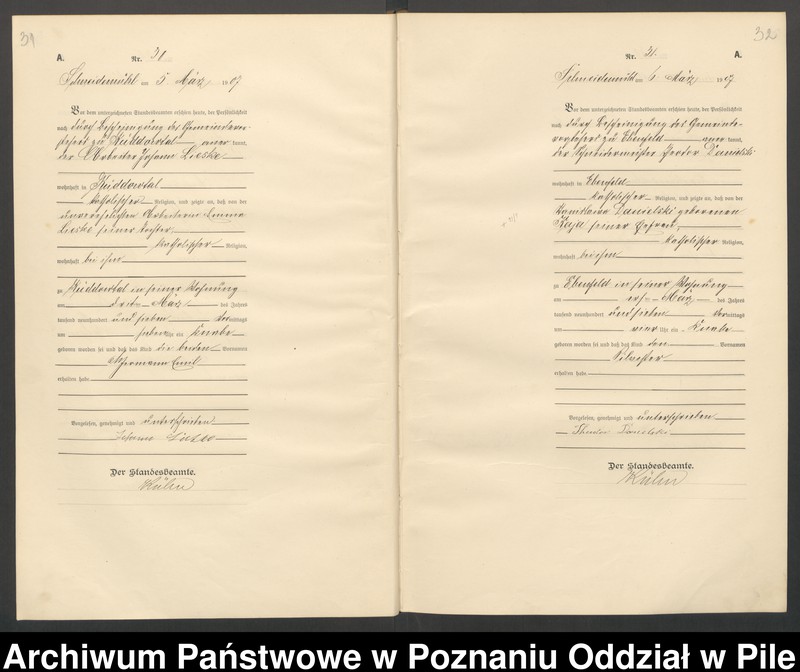 31
A.
Nr. 30
Schneidemühl am 5 März 1907
Vor dem unterzeichneten Standesbeamten erschien heute, der Persönlichkeit
nach durch Bescheinigung des Gemeindevor-
stehers zu Küddowtal anerkannt,
der Arbeiter Johann Lieske
wohnhaft in Küddowtal
katholischer Religion, und zeigte an, daß von der
unverehelichten Arbeiterin Emma
Lieske seiner Tochter,
katholischer Religion,
wohnhaft bei ihm
zu Küddowtal in seiner Wohnung
am dritten März des Jahres
tausend neunhundert und sieben Vormittags
um sieben Uhr ein Knabe
geboren worden sei und daß das Kind die beiden Vornamen
Hermann Emil
erhalten habe
Vorgelesen, genehmigt und unterschrieben
Johann
Der Standesbeamte.
Kühn
32
Nr. 31.
A.
Schneidemühl am 6 März 1907
Vor dem unterzeichneten Standesbeamten erschien heute, der Persönlichkeit
nach durch Bescheinigung des Gemeinde-
vorstehers zu Ebenfeld anerkannt,
der Schneidermeister Theodor Danielski
wohnhaft in Ebenfeld
katholischer Religion, und zeigte an, daß von der
Danielski geborenen
seiner Ehefrau,
katholischer Religion,
wohnhaft bei ihm
zu Ebenfeld in seiner Wohnung
am ersten März des Jahres
tausend neunhundert und sieben Vormittags
um vier Uhr ein Knabe
geboren worden sei und daß das Kind den Vornamen
Silvester
erhalten habe
Vorgelesen, genehmigt und unterschrieben
Theodor Danielski
Der Standesbeamte.
Kühn
Archiwum Państwowe w Poznaniu Oddział w Pile